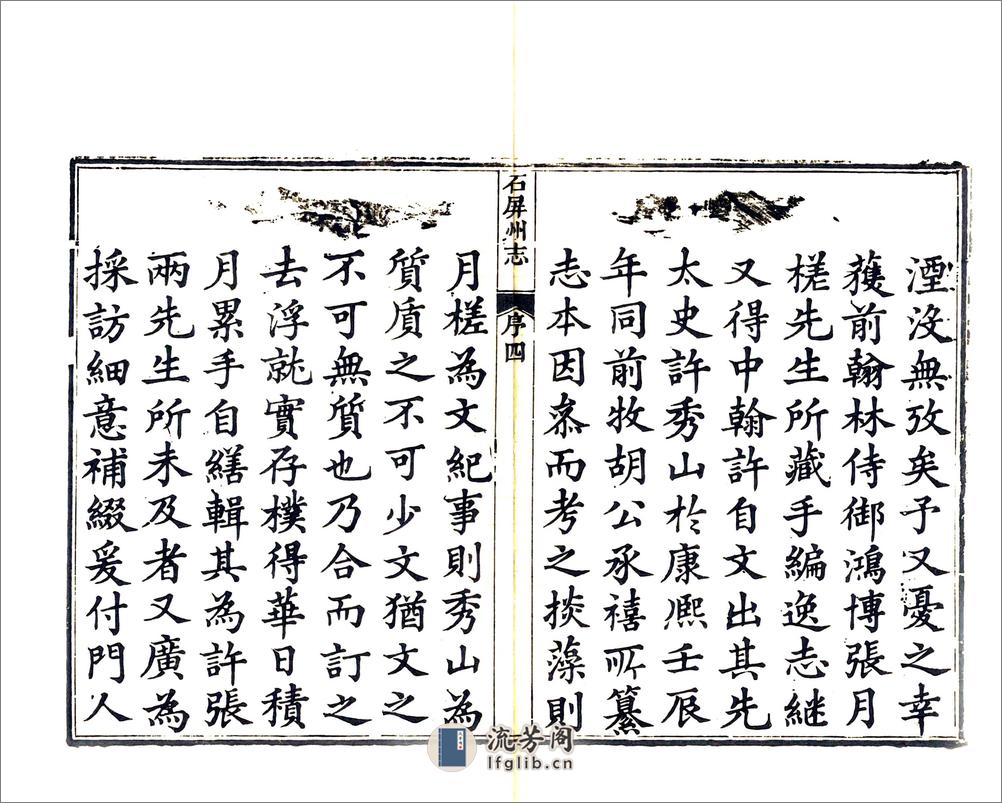 湮沒無攷矣予又憂之幸
獲前翰林侍御鴻博張月
槎先生所藏手編逸志継
又得中翰許自文出其先
太史許秀山於康熈壬辰
年同前牧胡公承禧所纂
志本因叅而考之掞藻則
石屏州志
序四
月槎為文紀事則秀山為
質質之不可少文猶文之
不可無質也乃合而訂之
去浮就實存樸得華日積
月累手自繕輯其為許張
兩先生所未及者又廣為
採訪細意補綴爰付門人
流芳阁
lfglib.cn